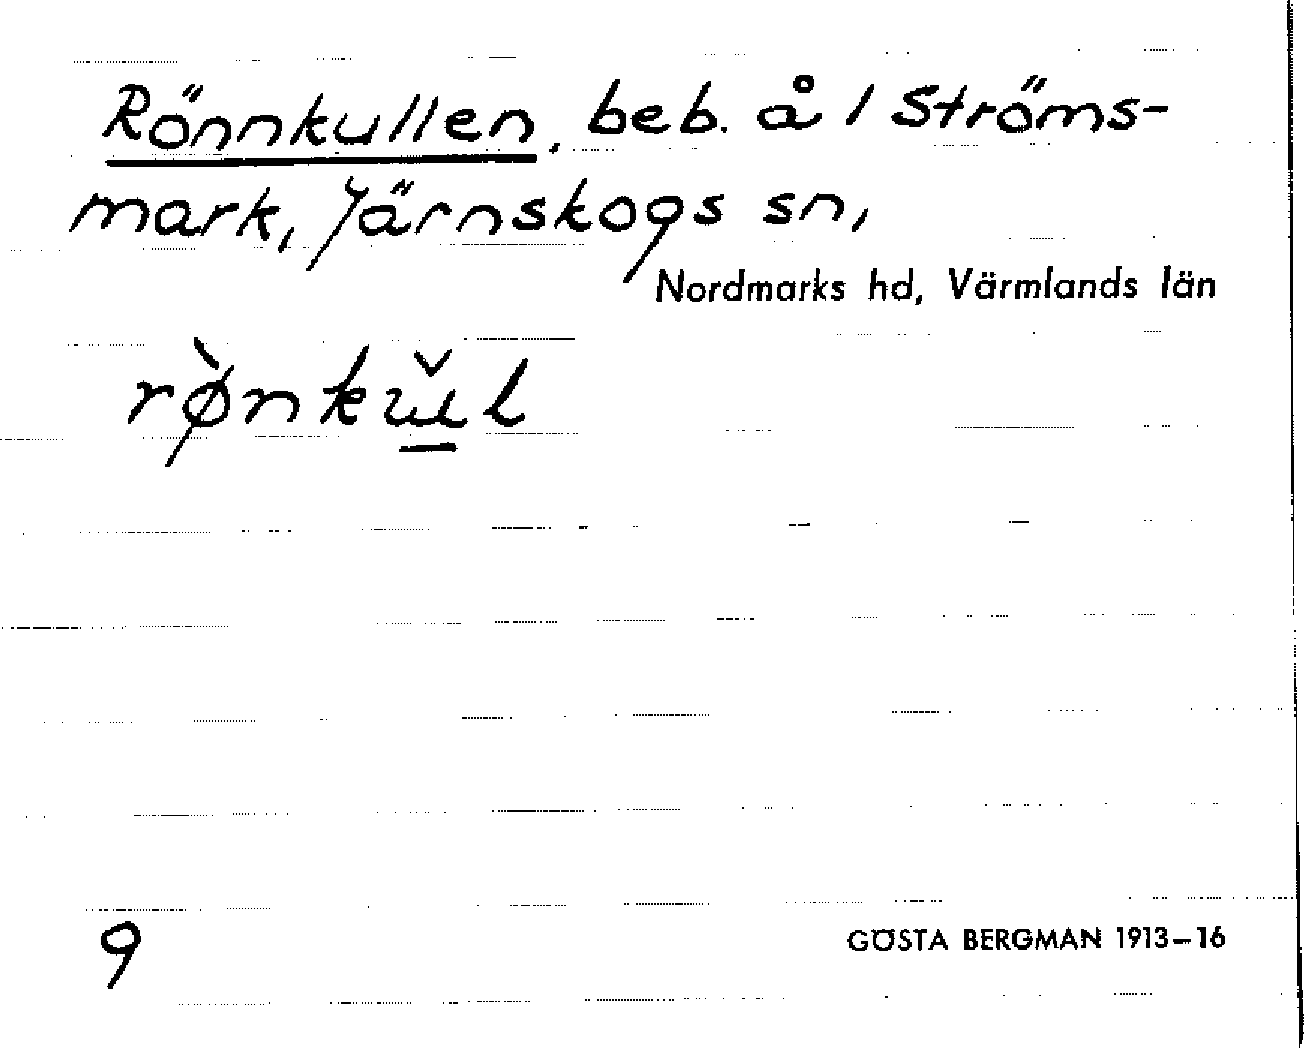 Rönnkullen, beb. å 1 Ströms-
mark, Järnskogs sn,
Nordmarks hd, Värmlands län
rø̀nkŭl
9
GÖSTA BERGMAN 1913–16